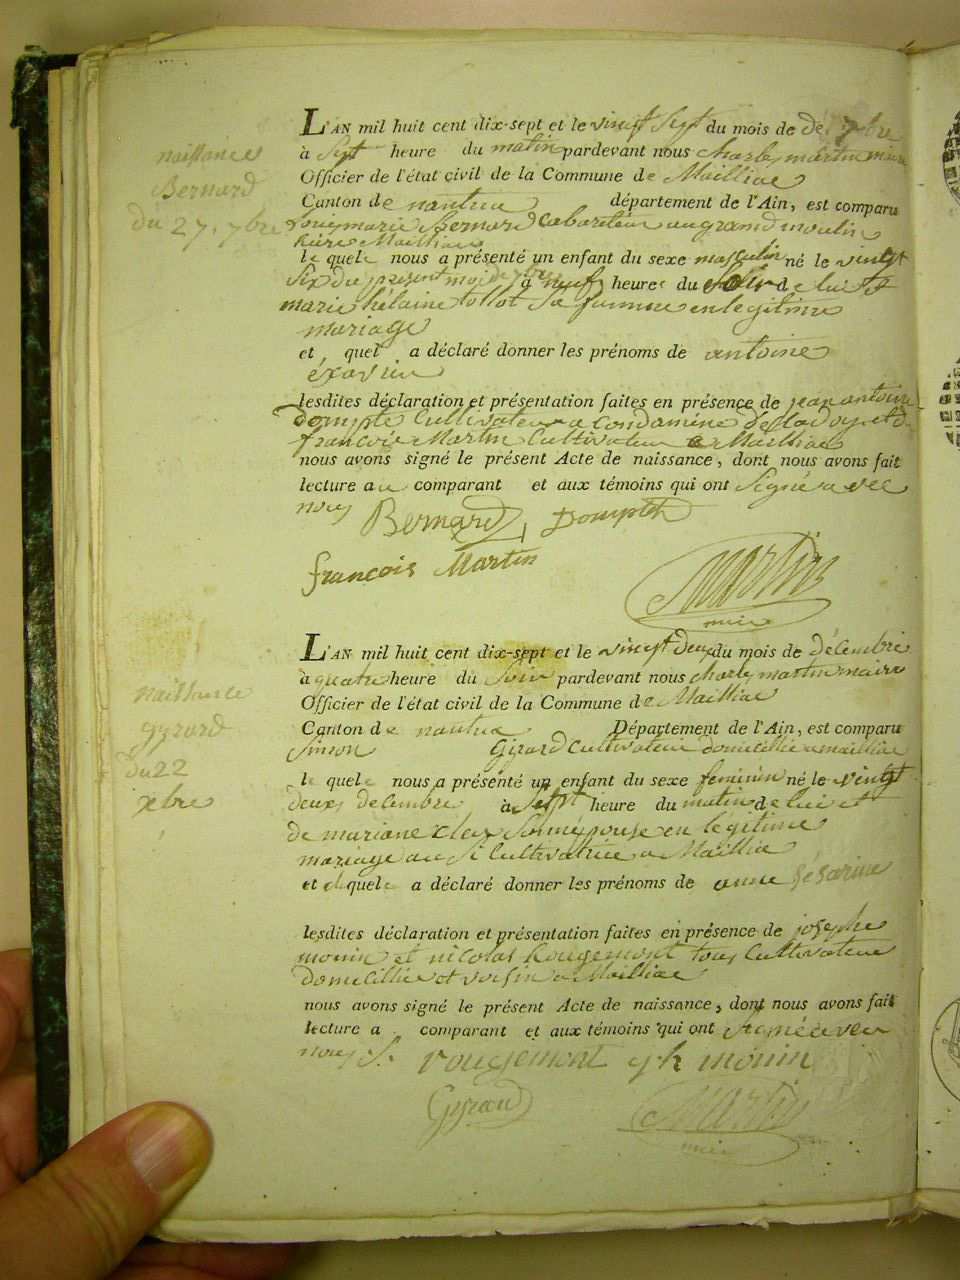 L'AN mil huit cent dix-sept et le vingt Sept du mois de de 7bre
à Sept heure du matin pardevant nous charles martin maire
Officier de l'état civil de la Commune de Mailliac
Canton de nantua département de l'Ain, est comparu
Louis marie Bernard Cabareteur au grand moulin
Mailliac
le quel nous a présenté un enfant du sexe masculin né le vingt
Six du present moi de 7bre à neuf heures du de lui et
marie tollot Sa famme en legitime
mariage
et quel a déclaré donner les prénoms de antoine
éxavier
lesdites déclaration et présentation faites en présence de jean antoine
dompte Cultivateur a condamine de ladoy et de
francois Martin Cultivateur a Mailliac
nous avons signé le présent Acte de naissance, dont nous avons fait
lecture au comparant et aux témoins qui ont Signé avec
nous
Bernard
françois Martin
Martin
mire
naissance
Bernard
du 27, 7bre
L'AN mil huit cent dix-sept et le vingt deux du mois de décembre
à quatre heure du Soir pardevant nous charles martin maire
Officier de l'état civil de la Commune de Mailliac
Canton de nantua Département de l'Ain, est comparu
Simon Girard Cultivateur domicillié a mailliac
le quel nous a présenté un enfant du sexe feminin né le vingt
deux décembre à Sept heure du matin de lui et
de mariane Son épouse en légitime
mariage au Si Cultivatrice a Mailliac
et quel a déclaré donner les prénoms de anne Césarine
lesdites déclaration et présentation faites en présence de josephe
monin et nicolas Rougemont tous Cultivateur
domicillié et voisin a Mailliac
nous avons signé le présent Acte de naissance, dont nous avons fait
lecture a comparant et aux témoins qui ont Signé avec
nous rougemont monin
Gyrard
Martin
mire
naissance
gyrard
du 22
xbre